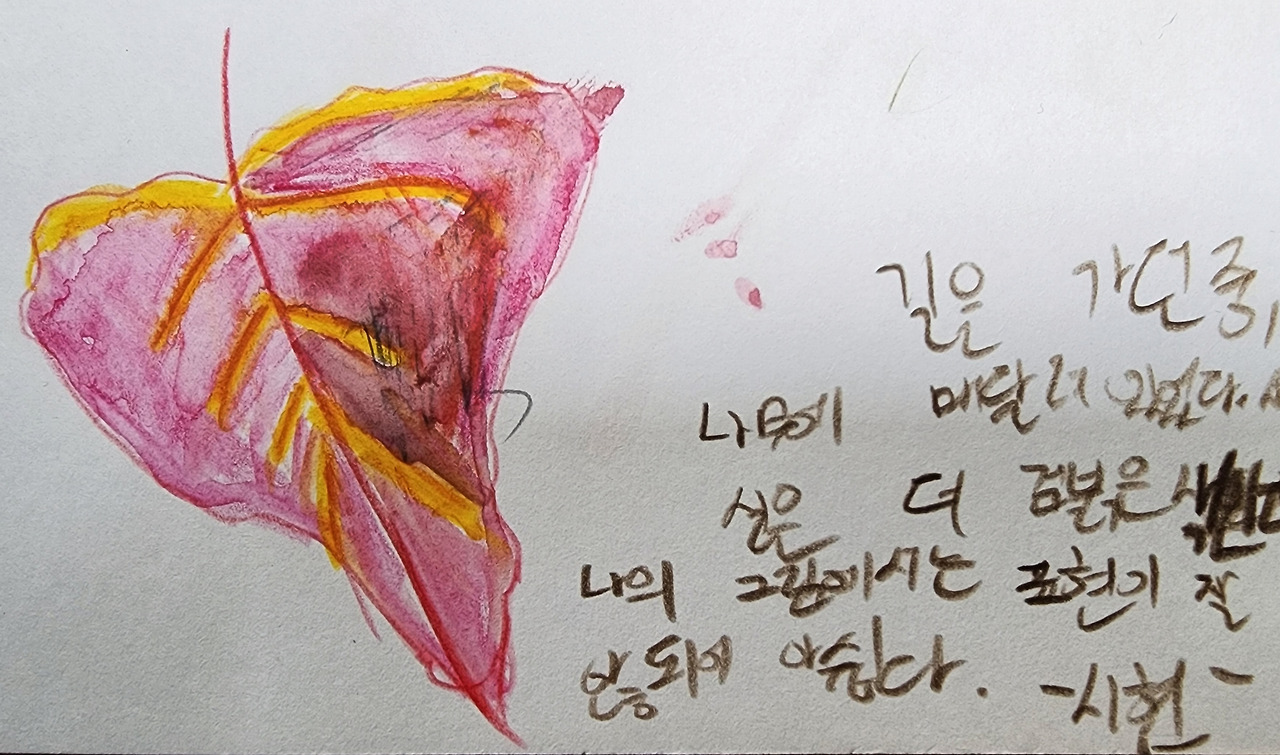 길은 가던 중,
나무에 매달려 있었다.
실은 더 검붉은
나의 그림에서는 표현이 잘
안되어 아쉽다.
-시현-